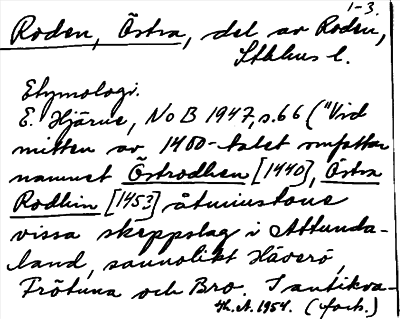 1-3.
Roden, Östra, del av Roden,
Sthlms l.
Etymologi.
E. Hjärne, NoB 1947, s. 66 ("Vid
mitten av 1400-talet omfattar
namnet Östrodhen [1440], Östra
Rodhin [1453] åtminstone
vissa skeppslag i Attunda-
land, sannolikt Häverö,
Frötuna och Bro. I antikva-
H. A. 1954. (forts.)